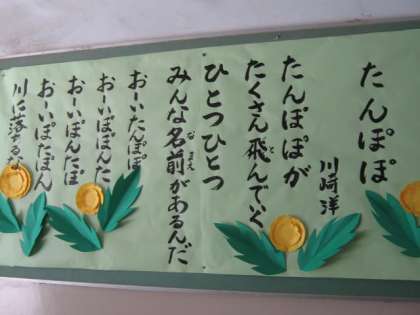 たんぽぽ
川崎洋
たんぽぽが
たくさん飛んでいく
ひとつひとつ
みんな名前があるんだ
おーいたんぽぽ
おーいぽぽんた
おーいぽんたぽ
おーいぽたぽん
川に落ちるな